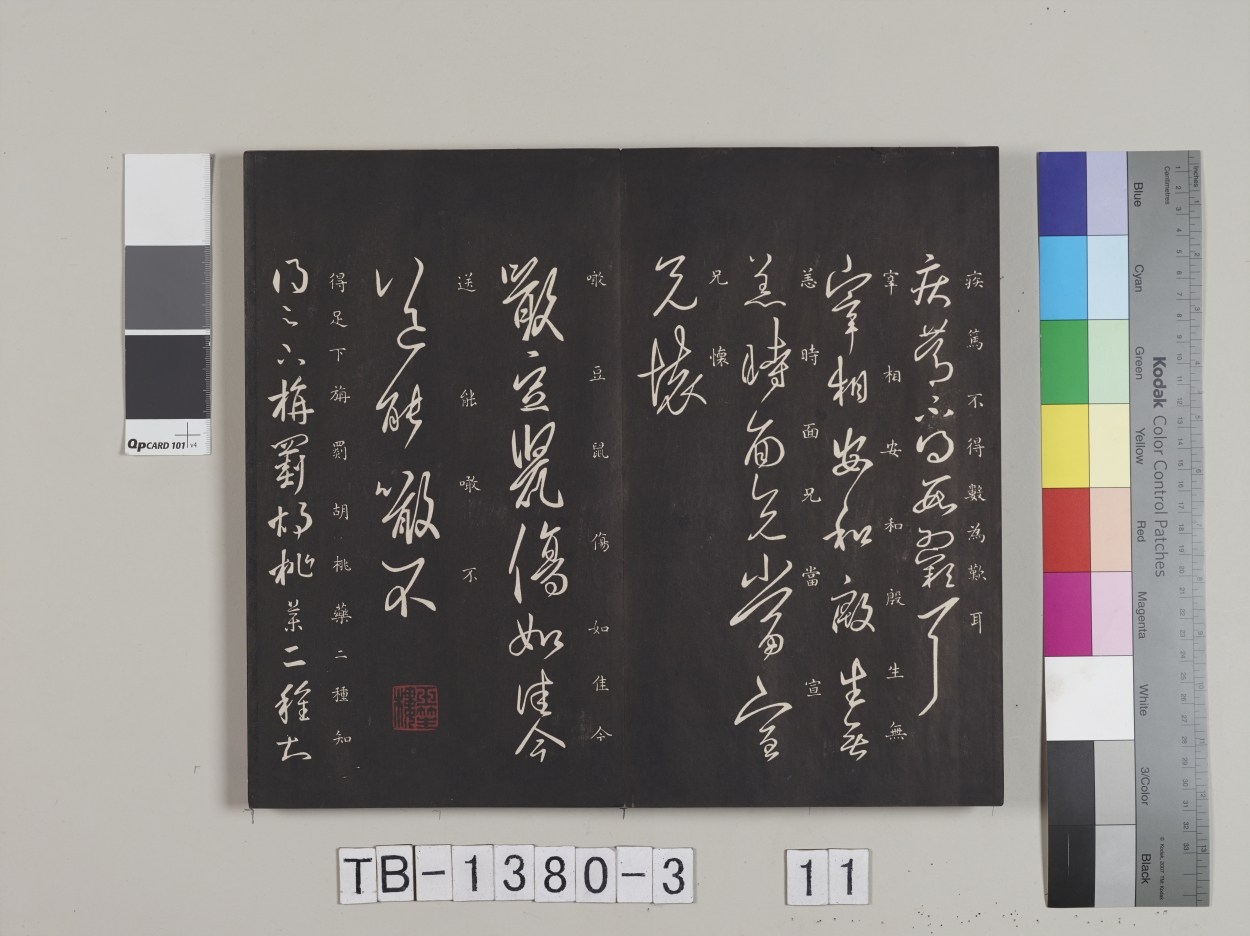 疾篤不得數為歎耳
宰相安和殷生無
恙時面兄當宣
兄懷
噉豆鼠傷如佳今
送能噉不
得足下旃罽胡桃藥二種知
QPCARD 101 v4
TB-1380-3 11
Kodak Color Control Patches
Blue Cyan Green Yellow Red Magenta White 3/Color Black
Inches
Centimetres